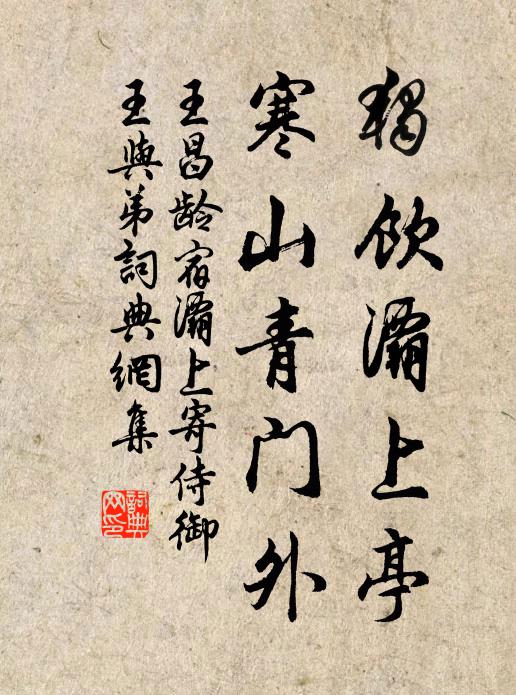 独飲灞上亭
寒山青门外
王昌龄宿灞上寄侍御
王與弟詞典網集
詞典網印